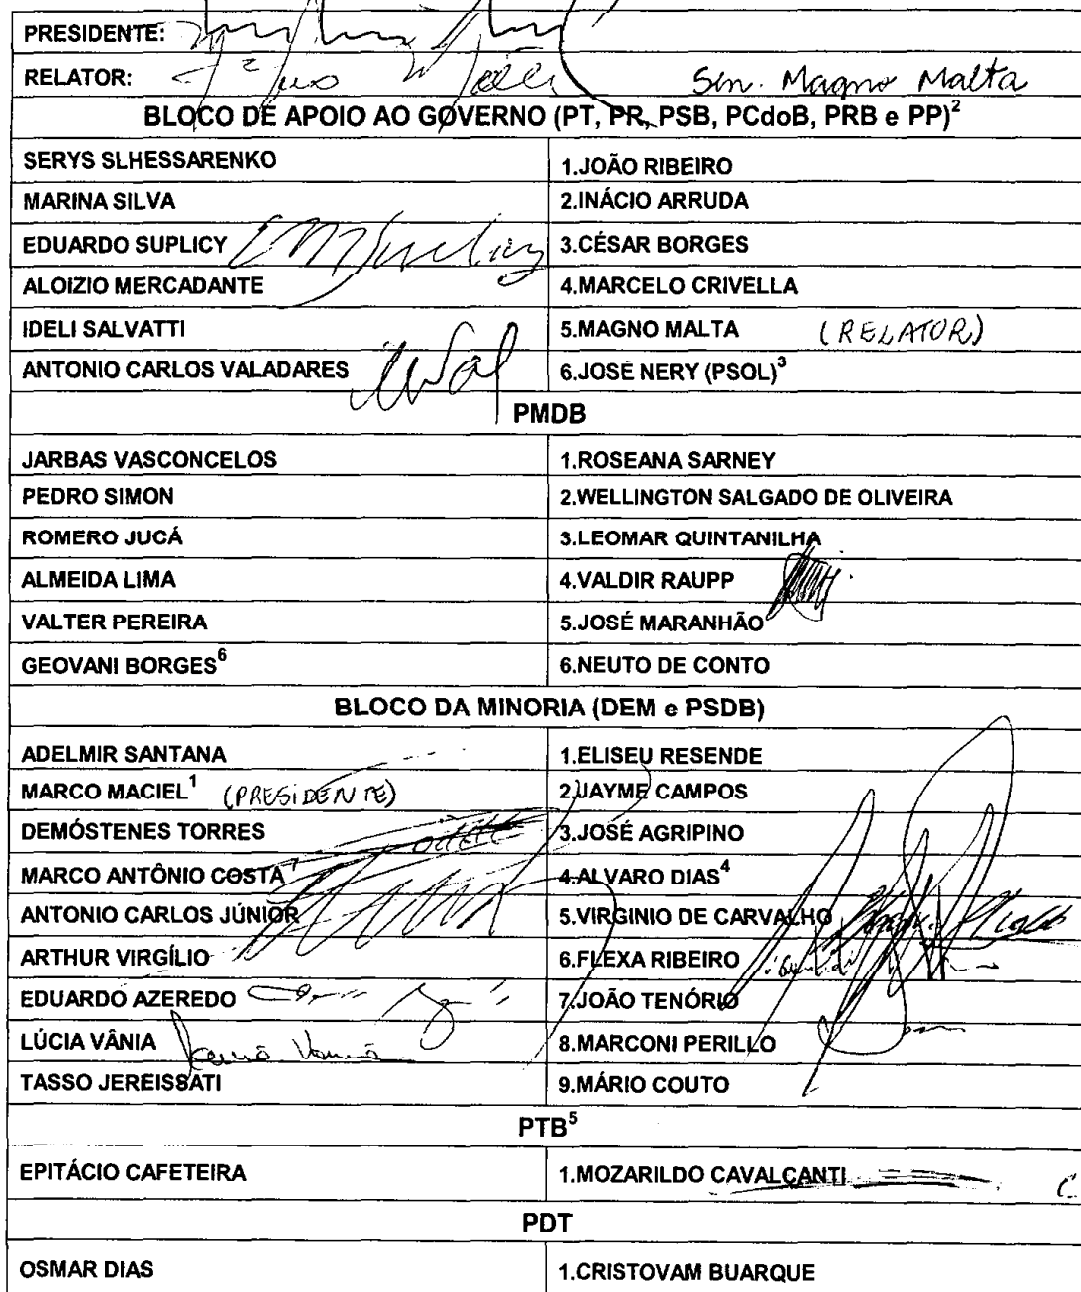 PRESIDENTE:
RELATOR: Sen. Magno Malta
BLOCO DE APOIO AO GOVERNO (PT, PR, PSB, PCdoB, PRB e PP)²
SERYS SLHESSARENKO 1.JOÃO RIBEIRO
MARINA SILVA 2.INÁCIO ARRUDA
EDUARDO SUPLICY 3.CÉSAR BORGES
ALOIZIO MERCADANTE 4.MARCELO CRIVELLA
IDELI SALVATTI 5.MAGNO MALTA (RELATOR)
ANTONIO CARLOS VALADARES 6.JOSÉ NERY (PSOL)³
PMDB
JARBAS VASCONCELOS 1.ROSEANA SARNEY
PEDRO SIMON 2.WELLINGTON SALGADO DE OLIVEIRA
ROMERO JUCÁ 3.LEOMAR QUINTANILHA
ALMEIDA LIMA 4.VALDIR RAUPP
VALTER PEREIRA 5.JOSÉ MARANHÃO
GEOVANI BORGES⁶ 6.NEUTO DE CONTO
BLOCO DA MINORIA (DEM e PSDB)
ADELMIR SANTANA 1.ELISEU RESENDE
MARCO MACIEL¹ (PRESIDENTE) 2.JAYME CAMPOS
DEMÓSTENES TORRES 3.JOSÉ AGRIPINO
MARCO ANTÔNIO COSTA⁷ 4.ALVARO DIAS⁴
ANTONIO CARLOS JÚNIOR 5.VIRGINIO DE CARVALHO
ARTHUR VIRGÍLIO 6.FLEXA RIBEIRO
EDUARDO AZEREDO 7.JOÃO TENÓRIO
LÚCIA VÂNIA Lúcia Vânia 8.MARCONI PERILLO
TASSO JEREISSATI 9.MÁRIO COUTO
PTB⁵
EPITÁCIO CAFETEIRA 1.MOZARILDO CAVALCANTI
PDT
OSMAR DIAS 1.CRISTOVAM BUARQUE